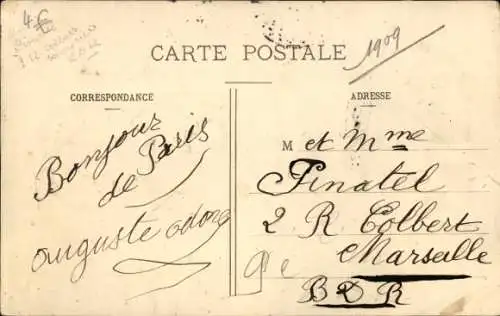 4€
CARTE POSTALE
1909
CORRESPONDANCE
Bonjour
de Paris
auguste odore
ADRESSE
M et Mme
Finatel
2 R Colbert
Marseille
BDR